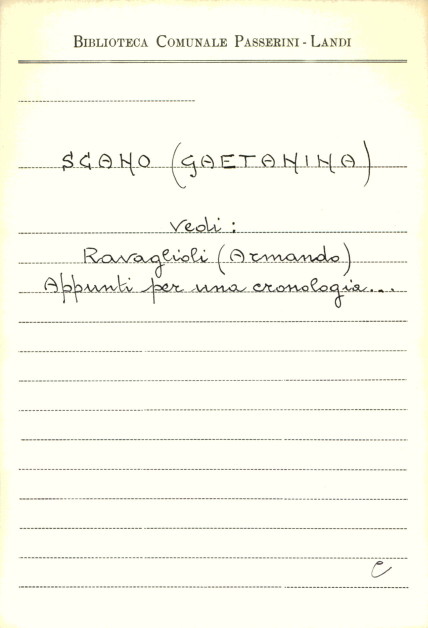 BIBLIOTECA COMUNALE PASSERINI - LANDI
SCANO (GAETANINA)
Vedi:
Ravaglioli (Armando)
Appunti per una cronologia...
C